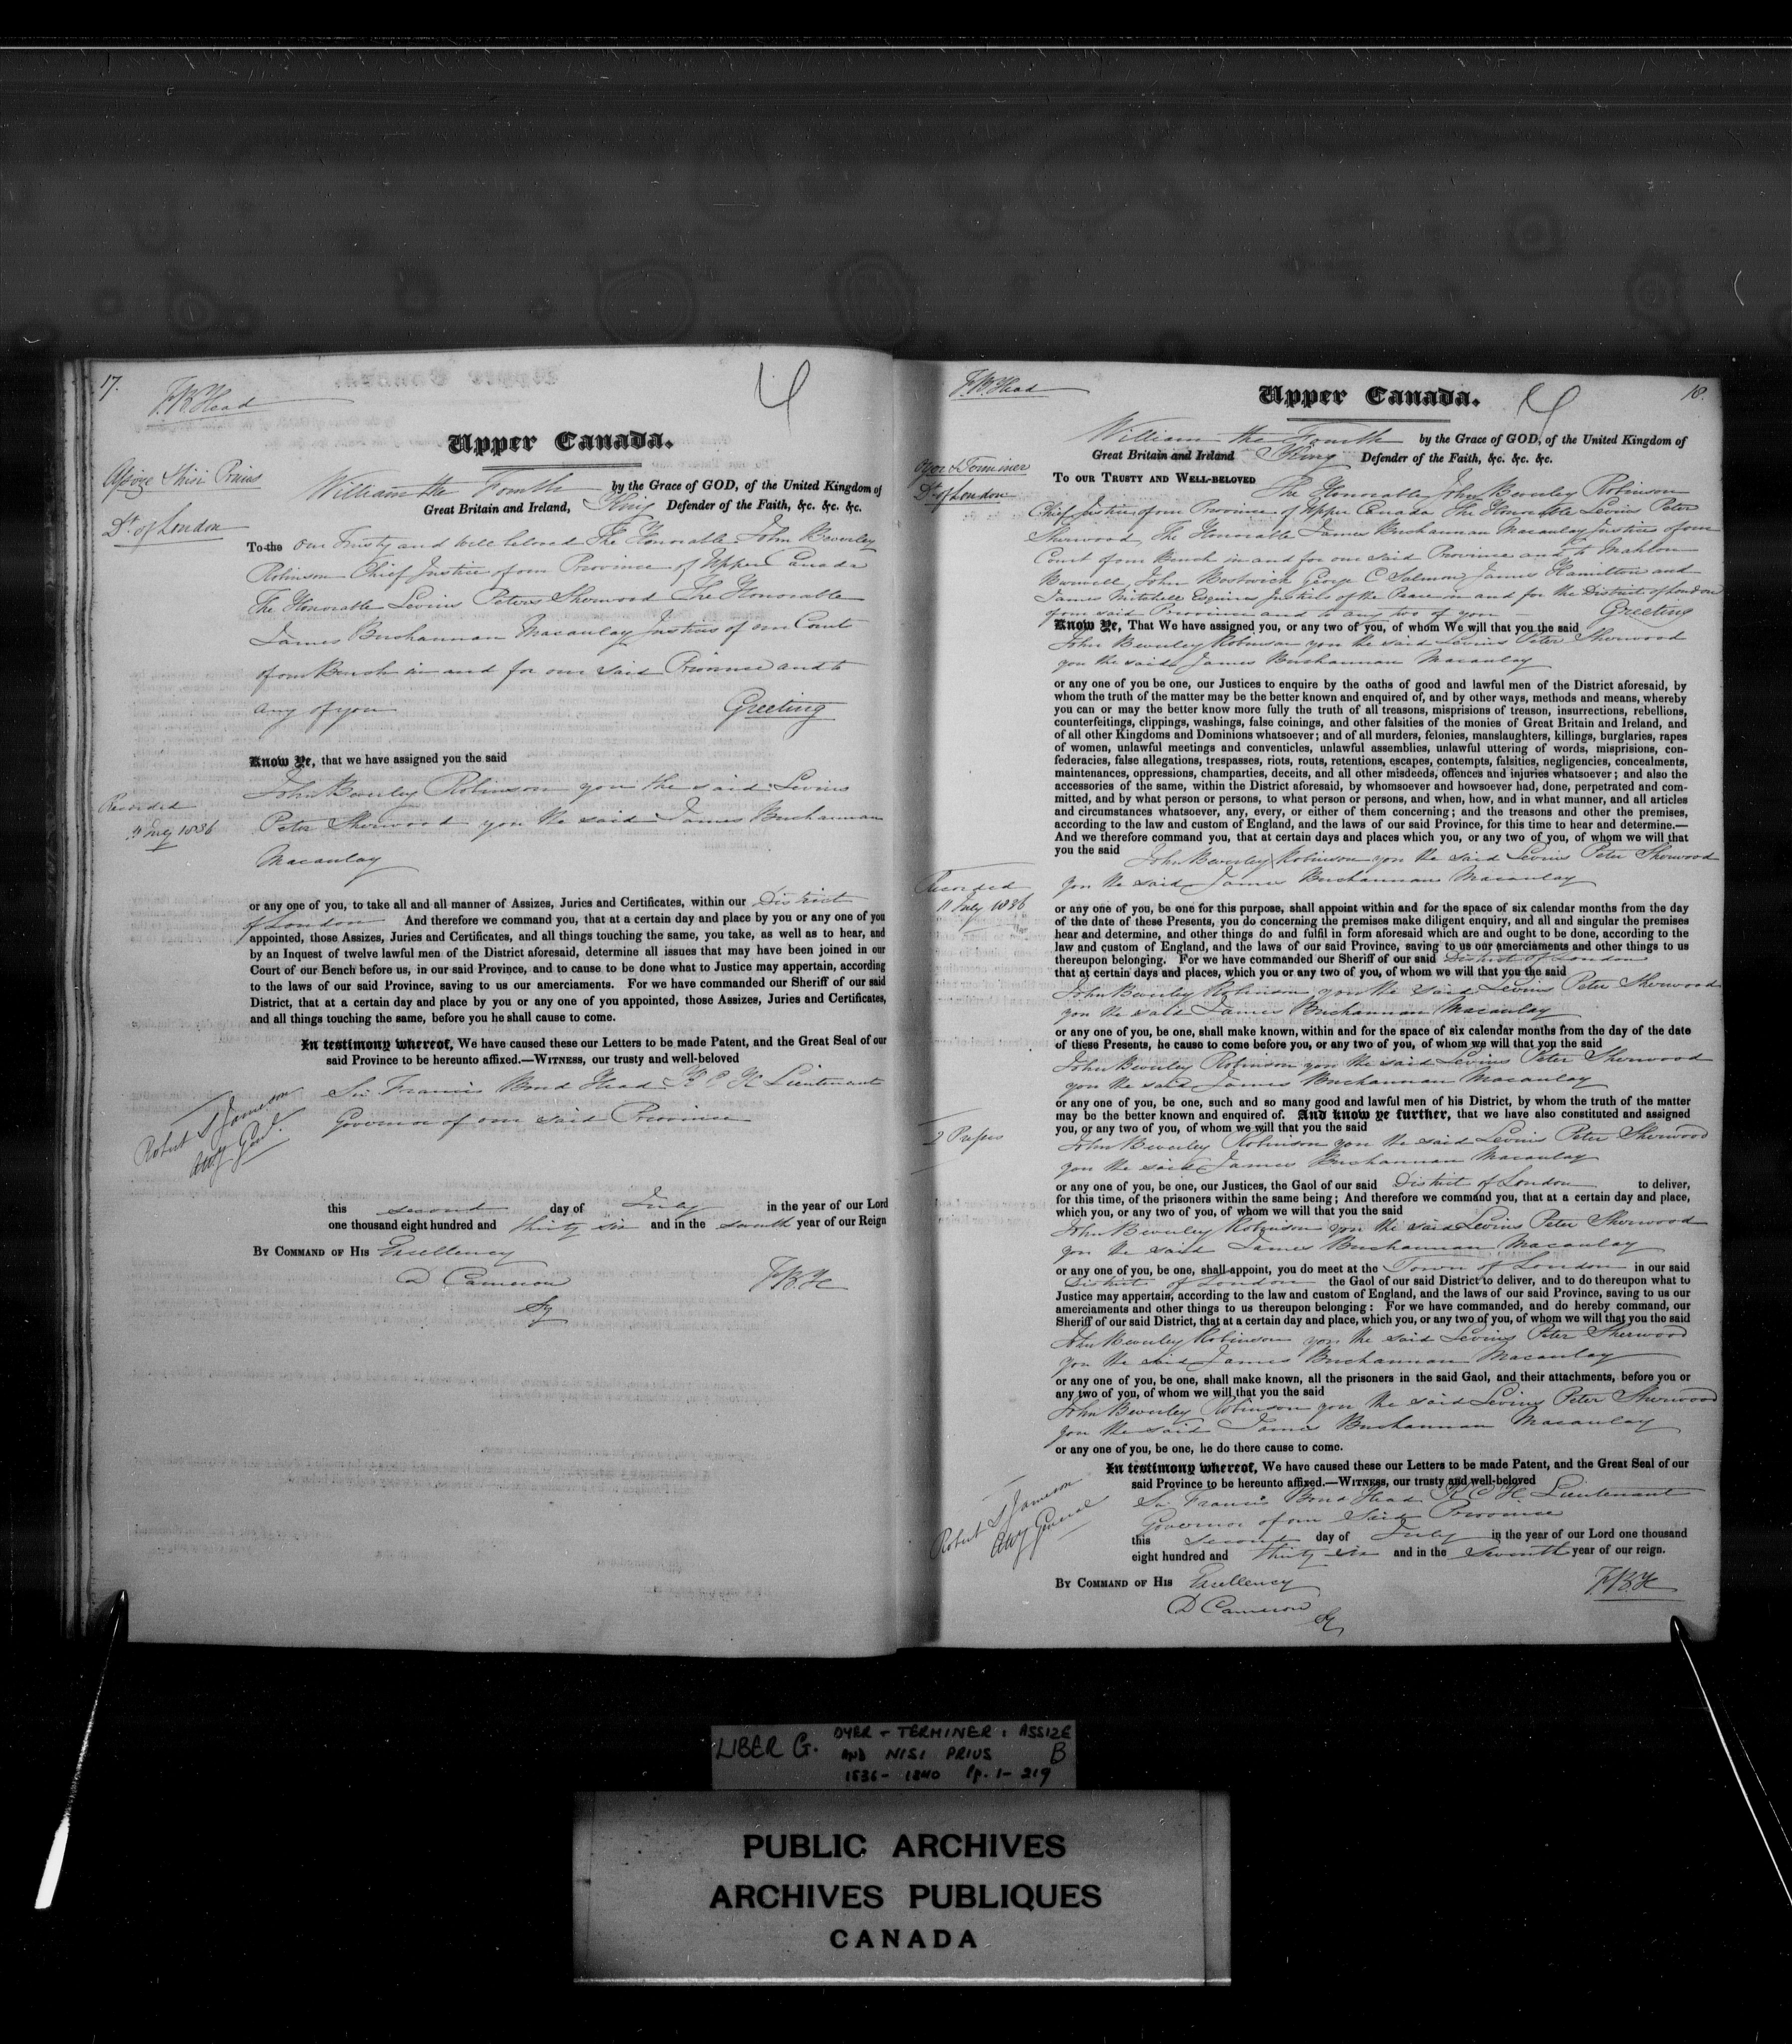 17.
F.B. Head
Upper Canada.
Assize & Nisi Prius
Dt. of London
William the Fourth by the Grace of GOD, of the United Kingdom of
Great Britain and Ireland, King Defender of the Faith, &c. &c. &c.
To the Our Trusty and Well beloved The Honorable John Beverley
Robinson Chief Justice of our Province of Upper Canada
The Honorable Levius Peters Sherwood The Honorable
James Buchannan Macaulay Justices of our Court
of our Bench in and for our said Province and to
any of you Greeting
Know Ye, that we have assigned you the said
John Beverley Robinson you the said Levius
Peter Sherwood you the said James Buchannan
Macaulay
Recorded
July 1836
or any one of you, to take all and all manner of Assizes, Juries and Certificates, within our District
of London And therefore we command you, that at a certain day and place by you or any one of you
appointed, those Assizes, Juries and Certificates, and all things touching the same, you take, as well as to hear, and
by an Inquest of twelve lawful men of the District aforesaid, determine all issues that may have been joined in our
Court of our Bench before us, in our said Province, and to cause to be done what to Justice may appertain, according
to the laws of our said Province, saving to us our amerciaments. For we have commanded our Sheriff of our said
District, that at a certain day and place by you or any one of you appointed, those Assizes, Juries and Certificates,
and all things touching the same, before you he shall cause to come.
In testimony whereof, We have caused these our Letters to be made Patent, and the Great Seal of our
said Province to be hereunto affixed.—WITNESS, our trusty and well-beloved
Sir Francis Bond Head K C H Lieutenant
Governor of our said Province
Robert S Jameson
Atty Genl.
this second day of July in the year of our Lord
one thousand eight hundred and thirty six and in the seventh year of our Reign
BY COMMAND OF HIS Excellency
D Cameron F.B.H
Sy
F.B. Head
Upper Canada.
18.
Oyer & Terminer
Dt. of London
William the Fourth by the Grace of GOD, of the United Kingdom of
Great Britain and Ireland King Defender of the Faith, &c. &c. &c.
TO OUR TRUSTY AND WELL-BELOVED The Honorable John Beverley Robinson
Chief Justice of our Province of Upper Canada The Honorable Levius Peter
Sherwood The Honorable James Buchannan Macaulay Justices of our
Court of our Bench in and for our said Province and to Mahlon
Burwell, John Bostwick George C Salmon James Hamilton and
James Mitchell Esquires Justices of the Peace in and for the District of London
of our said Province and to any two of you Greeting
Know Ye, That We have assigned you, or any two of you, of whom We will that you the said
John Beverley Robinson you the said Levius Peter Sherwood
you the said James Buchannan Macaulay
or any one of you be one, our Justices to enquire by the oaths of good and lawful men of the District aforesaid, by
whom the truth of the matter may be the better known and enquired of, and by other ways, methods and means, whereby
you can or may the better know more fully the truth of all treasons, misprisions of treason, insurrections, rebellions,
counterfeitings, clippings, washings, false coinings, and other falsities of the monies of Great Britain and Ireland, and
of all other Kingdoms and Dominions whatsoever; and of all murders, felonies, manslaughters, killings, burglaries, rapes
of women, unlawful meetings and conventicles, unlawful assemblies, unlawful uttering of words, misprisions, con-
federacies, false allegations, trespasses, riots, routs, retentions, escapes, contempts, falsities, negligencies, concealments,
maintenances, oppressions, champarties, deceits, and all other misdeeds, offences and injuries whatsoever; and also the
accessories of the same, within the District aforesaid, by whomsoever and howsoever had, done, perpetrated and com-
mitted, and by what person or persons, to what person or persons, and when, how, and in what manner, and all articles
and circumstances whatsoever, any, every, or either of them concerning; and the treasons and other the premises,
according to the law and custom of England, and the laws of our said Province, for this time to hear and determine.—
And we therefore command you, that at certain days and places which you, or any two of you, of whom we will that
you the said John Beverley Robinson you the said Levius Peter Sherwood
you the said James Buchannan Macaulay
Recorded
11 July 1836
or any one of you, be one for this purpose, shall appoint within and for the space of six calendar months from the day
of the date of these Presents, you do concerning the premises make diligent enquiry, and all and singular the premises
hear and determine, and other things do and fulfil in form aforesaid which are and ought to be done, according to the
law and custom of England, and the laws of our said Province, saving to us our amerciaments and other things to us
thereupon belonging. For we have commanded our Sheriff of our said District of London
that at certain days and places, which you or any two of you, of whom we will that you the said
John Beverley Robinson you the said Levius Peter Sherwood
you the said James Buchannan Macaulay
or any one of you, be one, shall make known, within and for the space of six calendar months from the day of the date
of these Presents, he cause to come before you, or any two of you, of whom we will that you the said
John Beverley Robinson you the said Levius Peter Sherwood
you the said James Buchannan Macaulay
or any one of you, be one, such and so many good and lawful men of his District, by whom the truth of the matter
may be the better known and enquired of. And know ye further, that we have also constituted and assigned
you, or any two of you, of whom we will that you the said
John Beverley Robinson you the said Levius Peter Sherwood
you the said James Buchannan Macaulay
or any one of you, be one, our Justices, the Gaol of our said District of London to deliver,
for this time, of the prisoners within the same being; And therefore we command you, that at a certain day and place,
which you, or any two of you, of whom we will that you the said
John Beverley Robinson you the said Levius Peter Sherwood
you the said James Buchannan Macaulay
or any one of you, be one, shall appoint, you do meet at the Town of London in our said
District of London the Gaol of our said District to deliver, and to do thereupon what to
Justice may appertain, according to the law and custom of England, and the laws of our said Province, saving to us our
amerciaments and other things to us thereupon belonging: For we have commanded, and do hereby command, our
Sheriff of our said District, that at a certain day and place, which you, or any two of you, of whom we will that you the said
John Beverley Robinson you the said Levius Peter Sherwood
you the said James Buchannan Macaulay
or any one of you, be one, shall make known, all the prisoners in the said Gaol, and their attachments, before you or
any two of you, of whom we will that you the said
John Beverley Robinson you the said Levius Peter Sherwood
you the said James Buchannan Macaulay
or any one of you, be one, he do there cause to come.
In testimony whereof, We have caused these our Letters to be made Patent, and the Great Seal of our
said Province to be hereunto affixed.—WITNESS, our trusty and well-beloved
Sir Francis Bond Head K C H Lieutenant
Governor of our Said Province
Robert S Jameson
Atty General
this second day of July in the year of our Lord one thousand
eight hundred and thirty six and in the seventh year of our reign.
BY COMMAND OF HIS Excellency F.B.H
D Cameron
Sy
LIBER G. OYER + TERMINER: ASSIZE
AND NISI PRIUS B
1836-1840 Pp. 1-219
PUBLIC ARCHIVES
ARCHIVES PUBLIQUES
CANADA